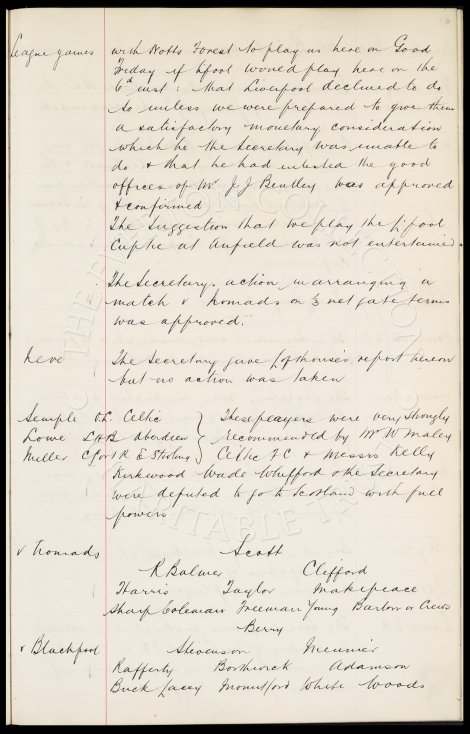 League games with Notts Forest to play us here on Good
Friday if L'pool would play here on the
6th inst: that Liverpool declined to do
so unless we were prepared to give them
a satisfactory monetary consideration
which he the Secretary was unable to
do & that he had enlisted the good
offices of Mr J J Bentley was approved
& confirmed
The Suggestion that we play the L'pool
Cup tie at Anfield was not entertained
The Secretarys action in arranging a
match v Nomads on ⅓ net gate terms
was approved.
Neve The Secretary gave Lofthouse's report hereon
but no action was taken
Semple O.L. Celtic } These players were very strongly
Lowe L H B Aberdeen } recommended by Mr W Maley
Miller C for R E Stirling } Celtic F C & Messrs Kelly
Kirkwood Wade Whifford & the Secretary
were deputed to go to Scotland with full
powers
v Nomads Scott
R Balmer Clifford
Harris Taylor Makepeace
Sharp Coleman Freeman Young Barlow or Crews
Berry
v Blackpool Stevenson Meunier
Rafferty Borthwick Adamson
Buck Lacey Mountford White Woods